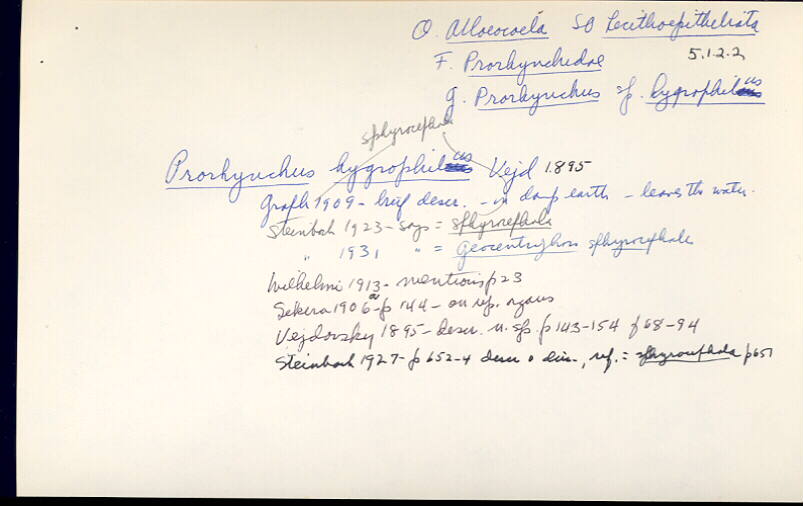 O. Alloeocoela SO Lecithoepitheliata
F. Prorhynchidae 5.1.2.2
g. Prorhynchus sp. hygrophilus
sphyrocephala
Prorhynchus hygrophilus Vejd 1895
Graff 1909 - brief descr. - in damp earth - leaves the water.
Steinboch 1923 - says = sphyrocephala
" 1931 " = Geocentrophora sphyrocephala
Wilhelmi 1913 - mentions p 23
Sekera 1906 - p 144 - on rep. organs
Vejdovsky 1895 - descr. n. sp. p 143-154 f 68-94
Steinboch 1927 - p 652-4 descr + disc., ref. = sphyrocephala p 651